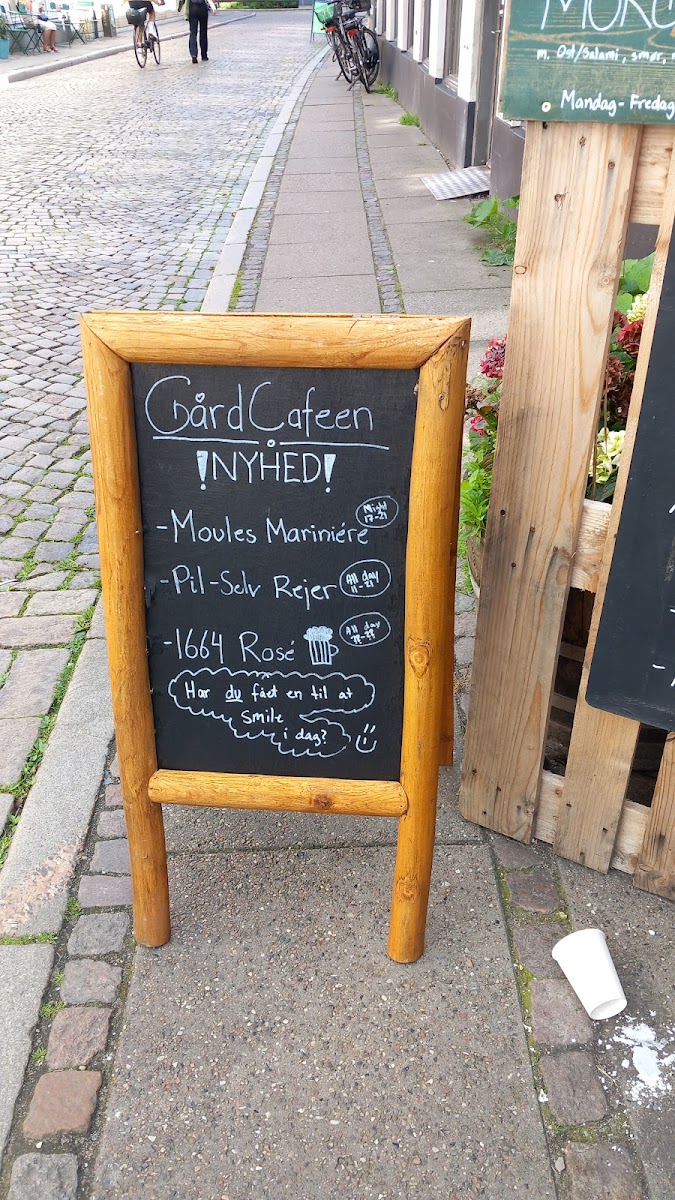 MORG
m. Ost/Salami, smør,
Mandag-Fredag
GårdCafeen
!NYHED!
-Moules Mariniére
Night
17-21
-Pil-Selv Rejer
All day
11-21
-1664 Rosé
All day
Har du fået en til at
smile
i dag?